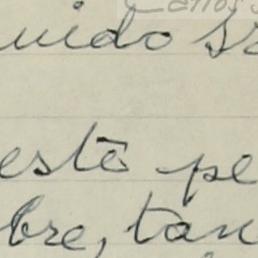 Carlos
uido sr
esto pe
bre, tan